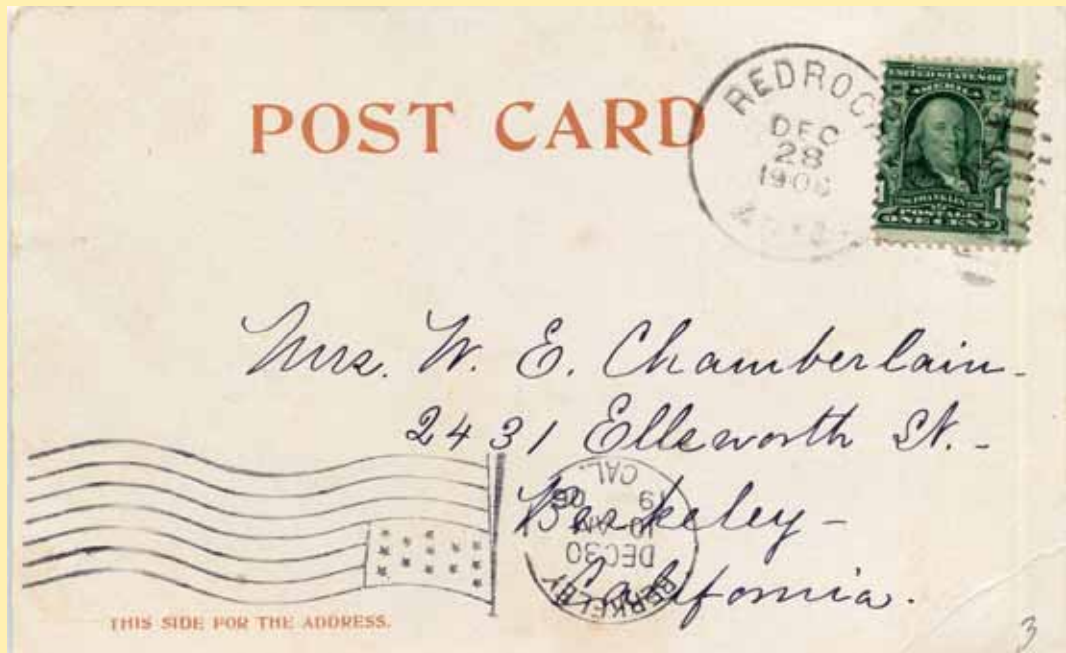 POST CARD
REDROCK
DEC
28
1906
UNITED STATES OF
AMERICA
1 FRANKLIN 1
POSTAGE
ONE CENT
Mrs. W. E. Chamberlain-
2431 Ellsworth St.-
Berkeley-
California.
BERKELEY
DEC 30
10 AM
19 06
CAL.
THIS SIDE FOR THE ADDRESS.
3